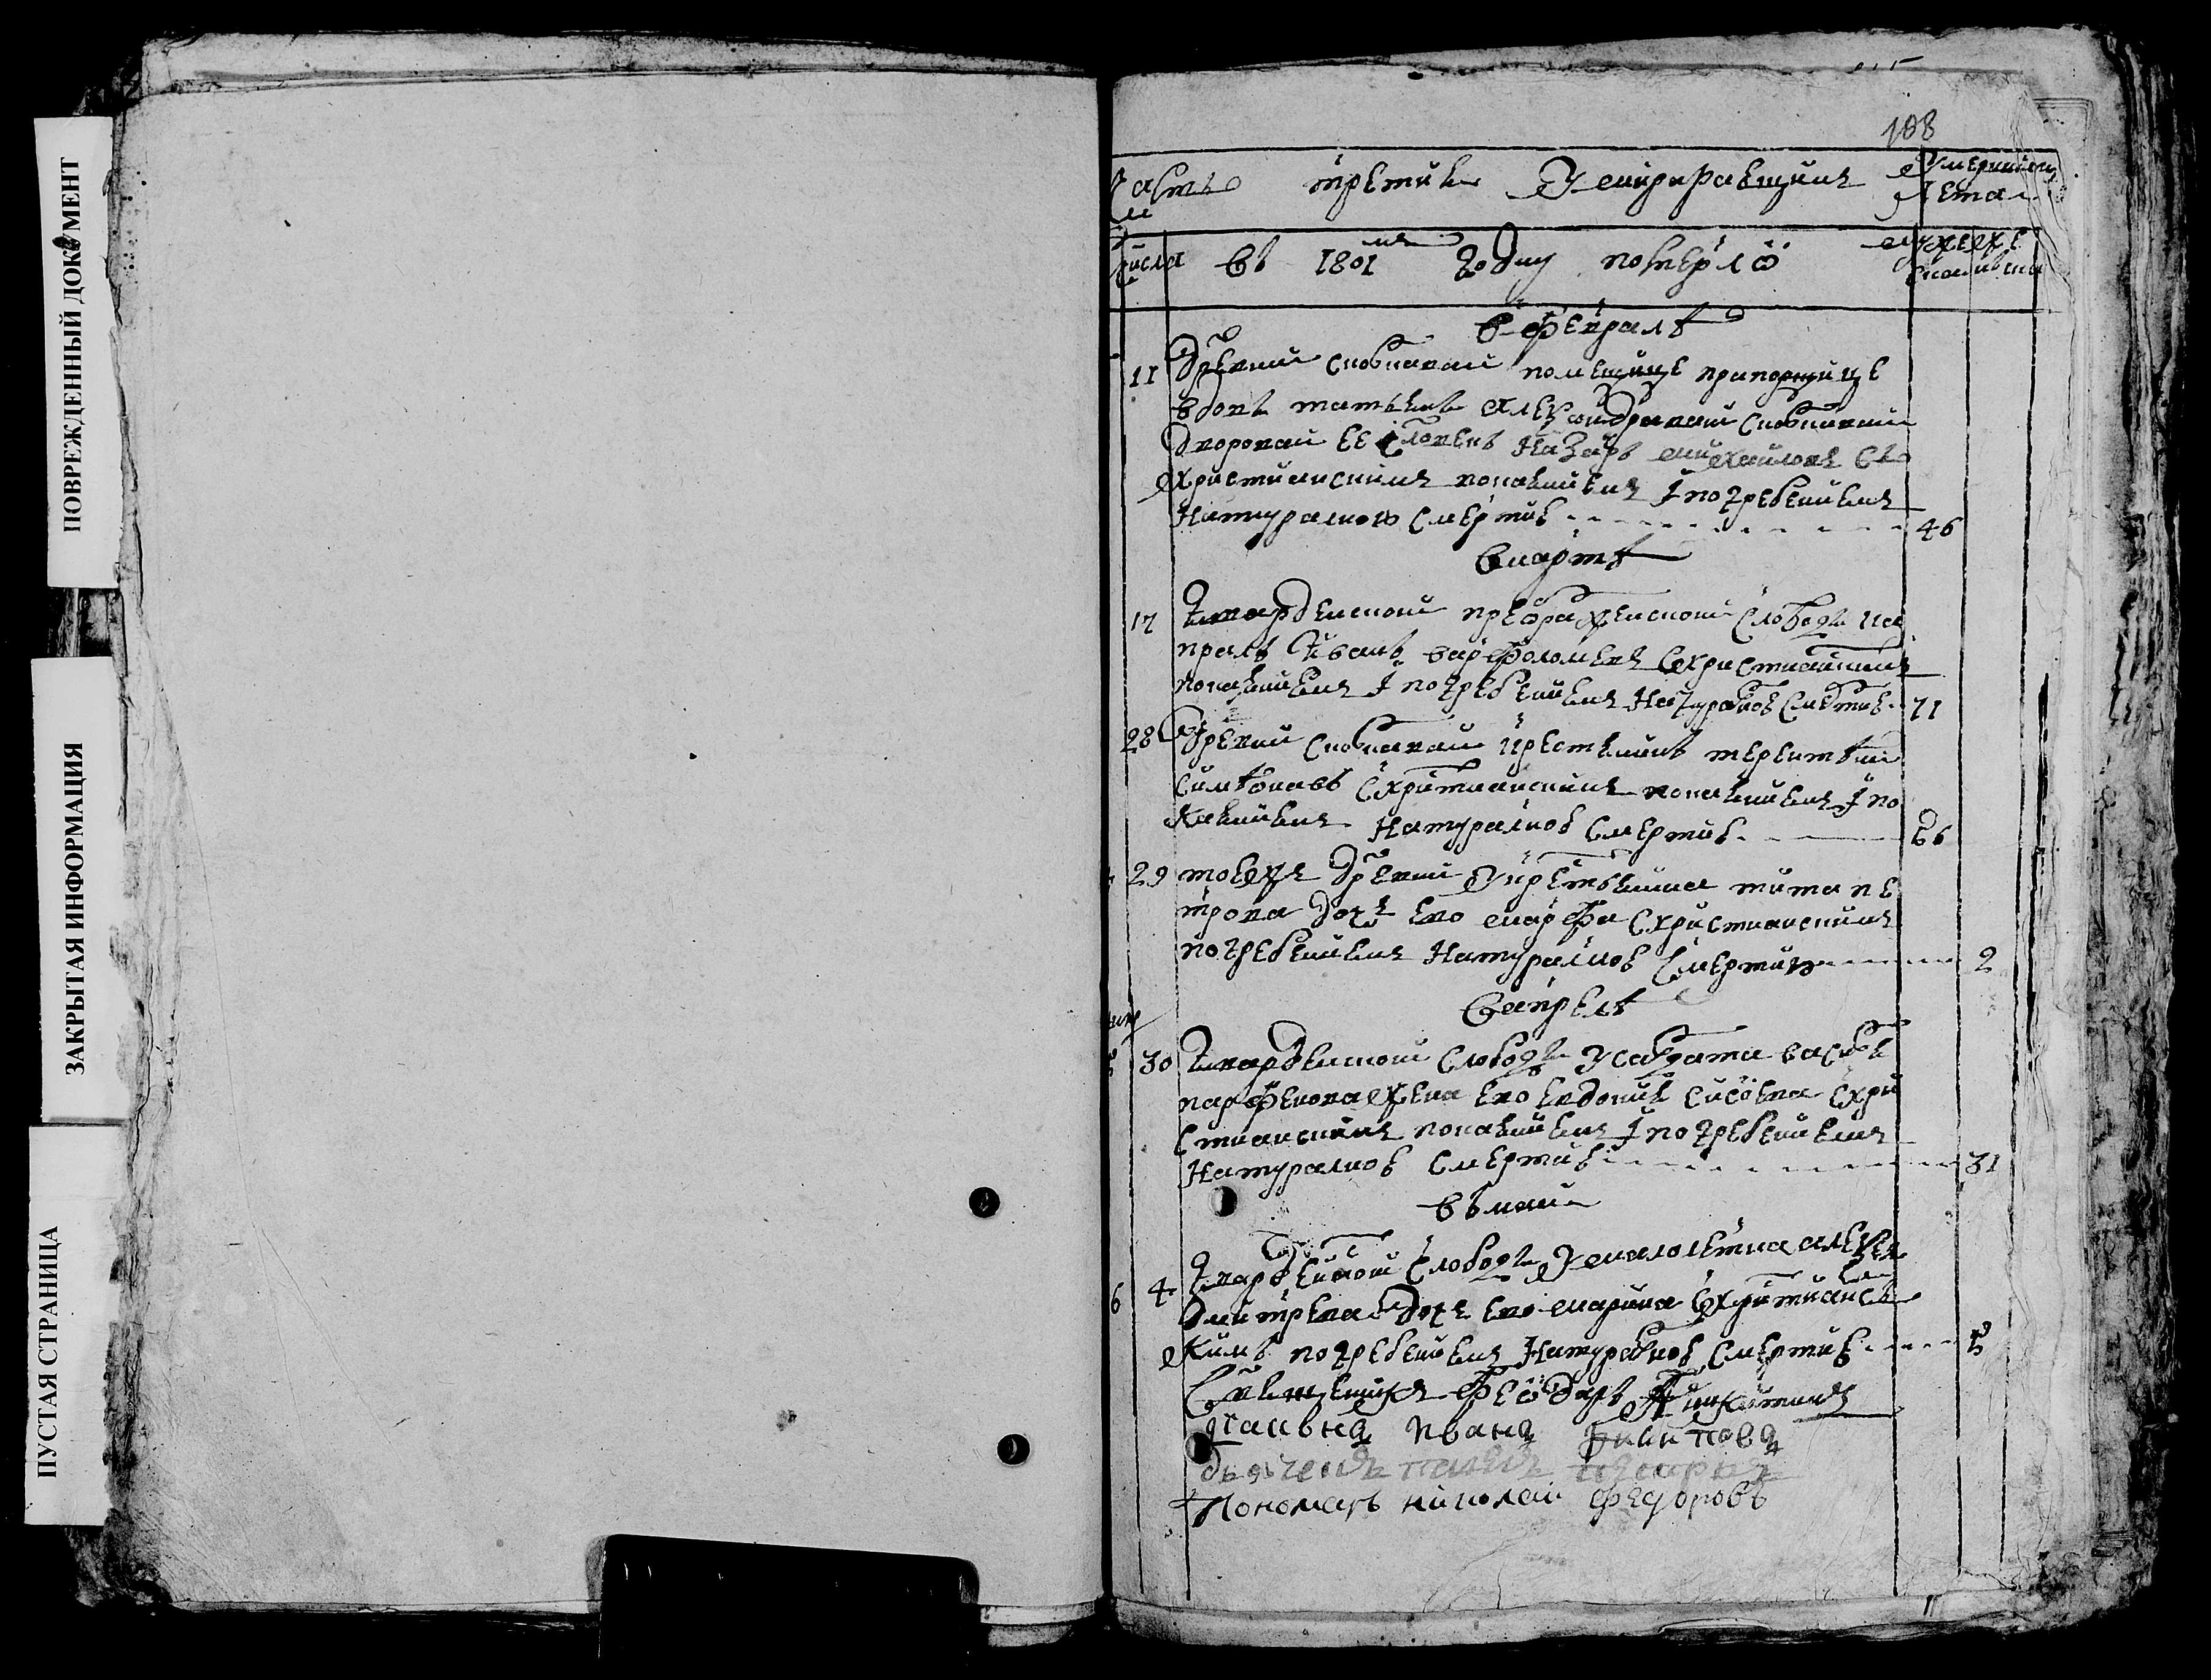 ПОВРЕЖДЕННЫЙ ДОКУМЕНТ
ЗАКРЫТАЯ ИНФОРМАЦИЯ
ПУСТАЯ СТРАНИЦА
108
часть третия умирающия
умерших лета
числа въ 1801мъ году померло
мужеска женска
в феврале
11 древни помещице прапорщице
вдове татьяне александравни
дворовай ее человекъ назаръ михайловъ съ
християнскимъ покаяниемъ i погребениемъ
натуралною смертию 46
в марте
17 гвардейской преображенской слободы ка
пралъ иванъ варфоломеевъ с християнскимъ
покаяниемъ i погребениемъ натуралною смертию 71
28 древни крестьянинъ терентеи
симионавъ с християнскимъ покаяниемъ i по
натуралною смертию 66
29 тоежъ древни у крестьянина тита пе
трова дочь ево марфа с християнскимъ
погребениемъ натуралною смертию 2
в апреле
30 гвардейской слободы у салдата василя
парфенова жена ево евдокия сисоева с хри
стиянскимъ покаяниемъ i погребениемъ
натуралною смертию 31
въ маи
6 4 гвардейской слободы у малолетна алексея
дмитрева дочь ево марина с християнс
кимъ погребениемъ натуралною смертию
священникъ феодоръ никитинъ
диаконъ иванъ
дьячекъ
пономарь николаи федоровъ